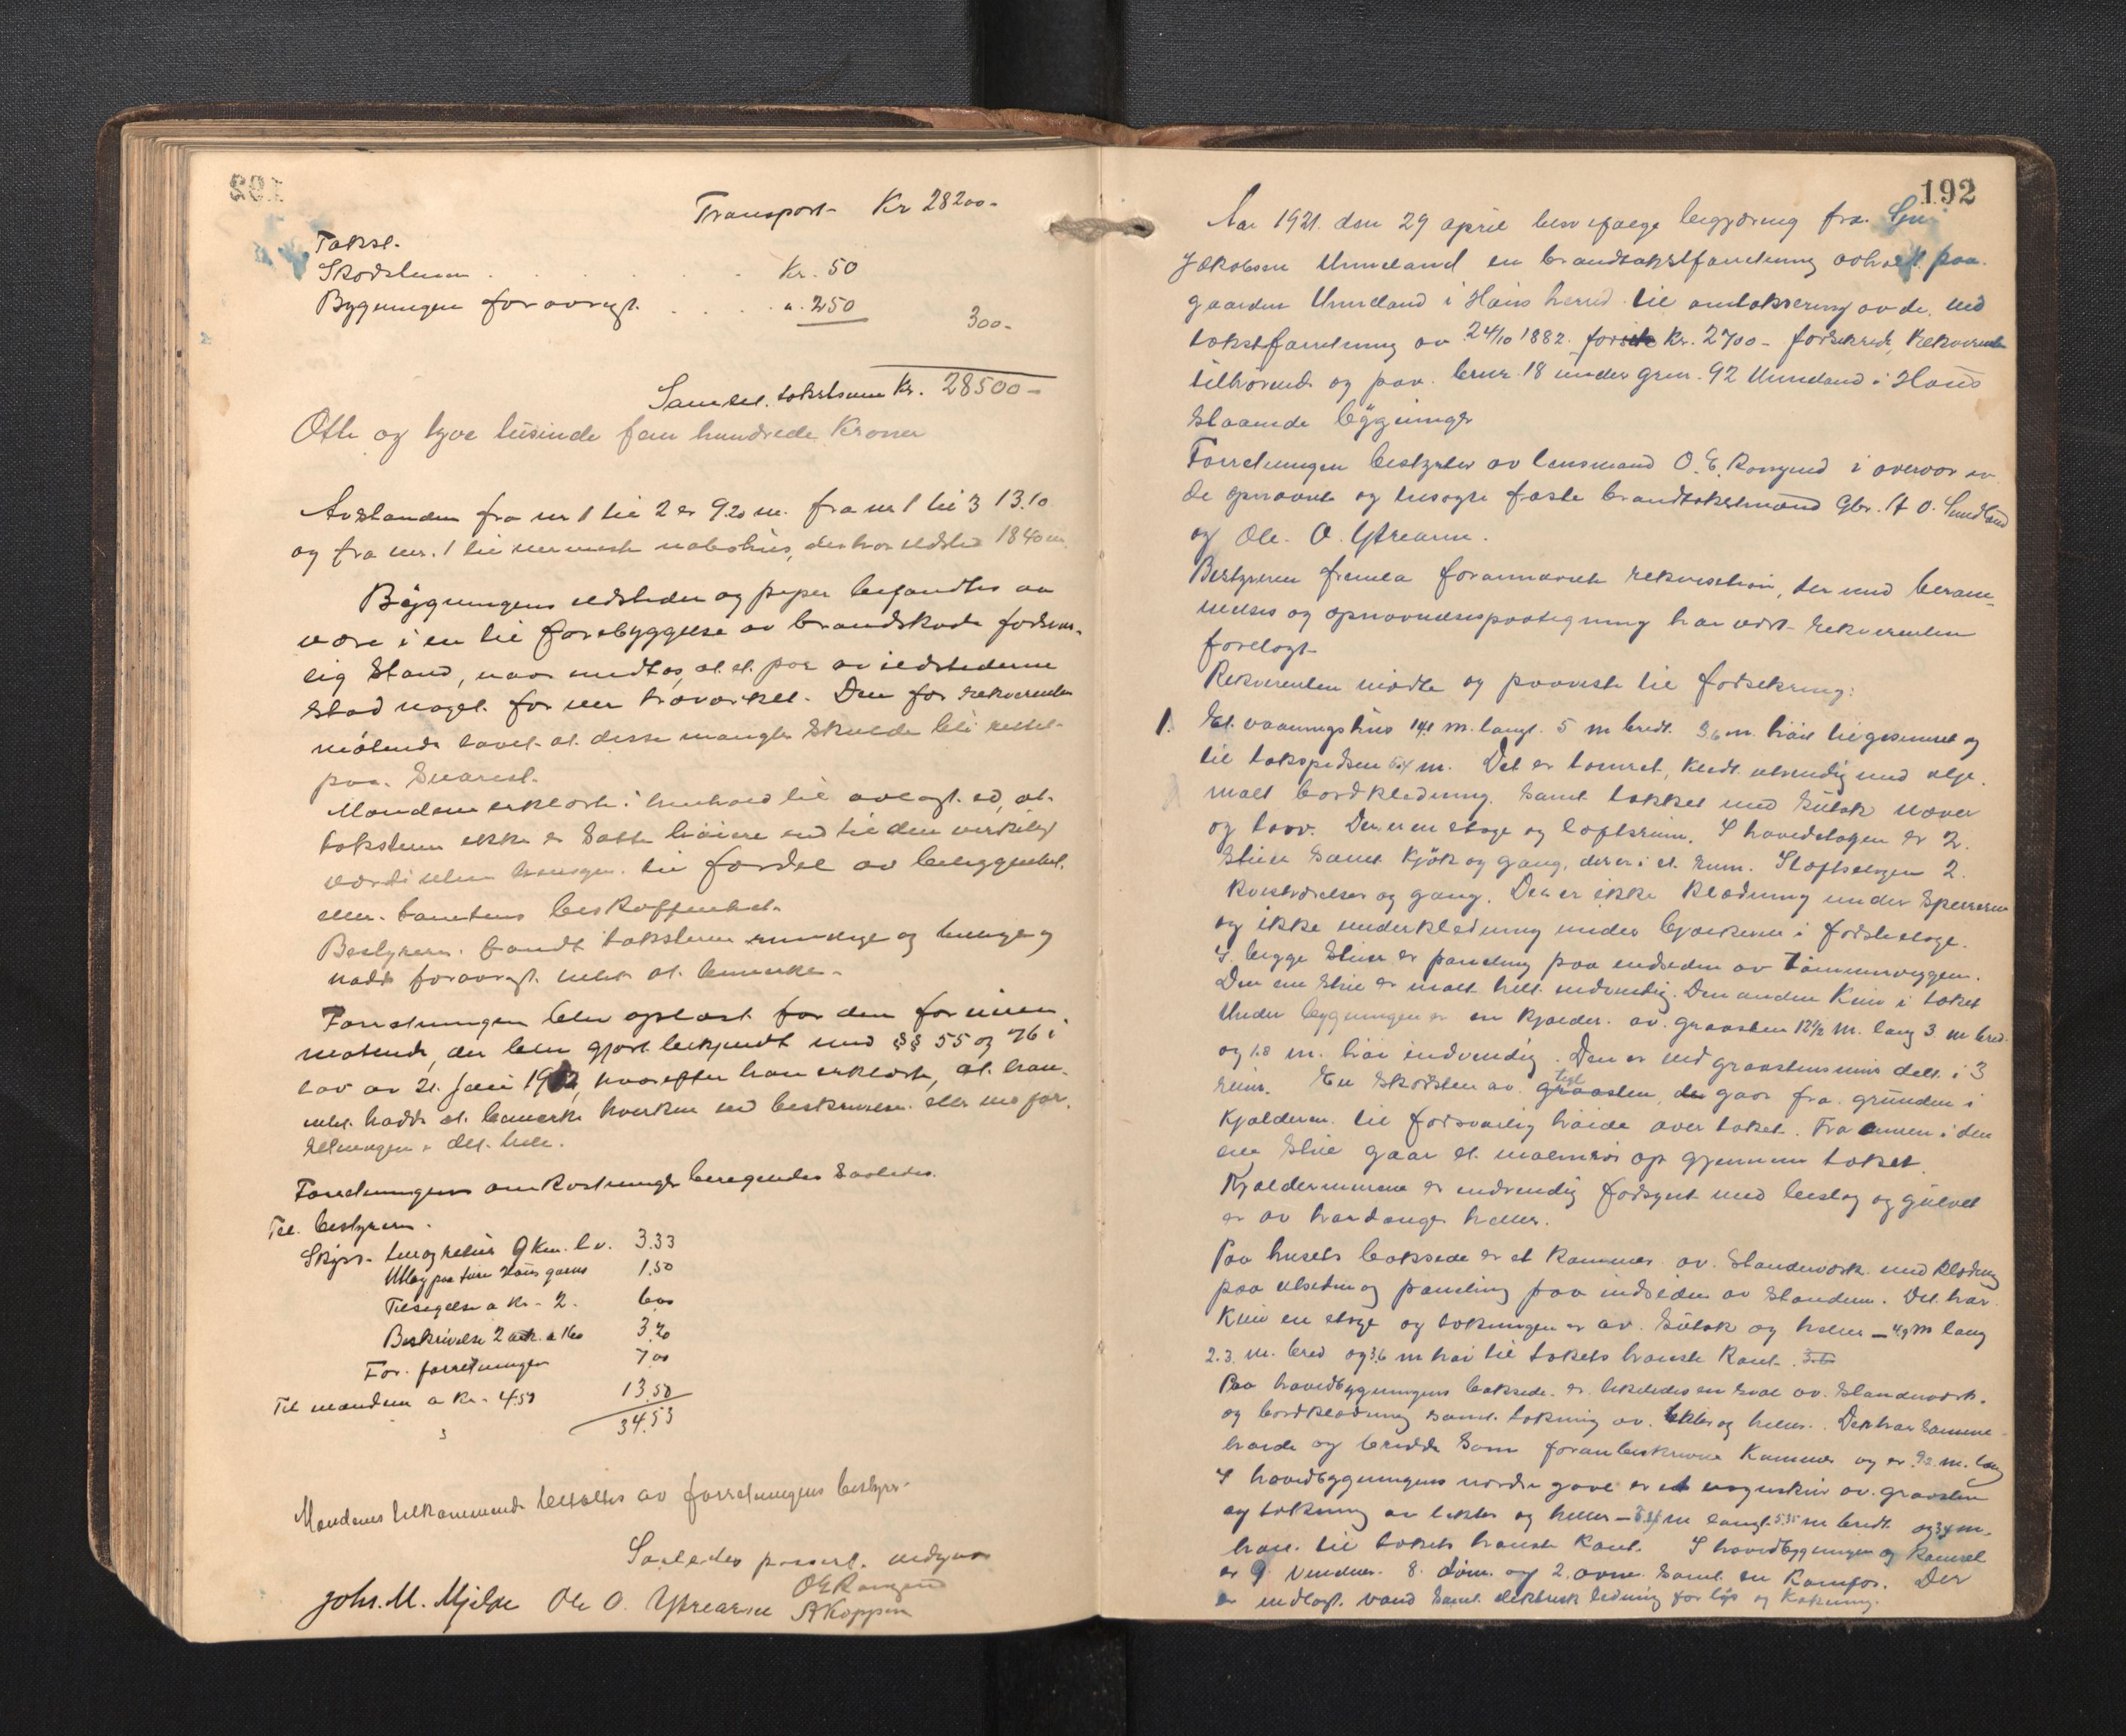 Transport- Kr 28200-
Takst.
Skorstenen . . . . . . Kr. 50
Bygningen foravrigt. . . . . " 250
300-
Samlet takstsum Kr. 28500-
Otte og tyve tusinde fem hundrede Kroner
Avstanden fra nr 1 til 2 er 9.20 m. fra nr 1 til 3 13.10
og fra nr. 1 til nermeste nabohus, der har ildsted 18.40 m.
Bygningens ildsteder og piper befandtes at
være i en til forebyggelse av brandskade forsvar-
lig stand, naar undtas, at et par av ildstederne
stod noget for nær træverket. Den for rekvirenten
møtende lovet at disse mangler skulde bli rettet
paa snarest.
Mændene erklærte i henhold til avlagt ed, at
taksterne ikke er satte høiere end til den virkelige
værdi uten hensyn til fordel av beliggenhet
eller tomtens beskaffenhet.
Bestyreren fandt taksterne rimelige og
hadde foravrigt intet at bemerke-
Forretningen blev oplæst for den
møtende, der blev gjort bekjendt med §§ 55 og 76 i
lov av 21. juni 1912, hvorefter han erklærte, at han
intet hadde at bemerke hverken ved beskrivelsen eller ved for-
retningen i det hele.
Forretningens omkostninger beregnedes saaledes.
Til bestyreren.
Skyss- tur og retur 9 Km. l.v. 3.33
Utlæg paa turen Haus 1.50
Tilsigelse a Kr- 2. 6.00
Beskrivelse 2 ark. a 1.60 3.20
For. forretningen 7.00
Til mændene a Kr- 4.50 13.50
34.53
Mændenes tilkommende betaltes av forretningens bestyrer-
Saaledes passert. utgives
OE Rangend
Joh. M. Mjelde Ole O. Ytrearne A Koppen
192
Aar 1921. den 29 april blev ifølge begjæring fra
Jakobsen Unneland en brandtakstforretning avholdt paa
gaarden Unneland i Haus herred til omtaksering av de, ved
takstforretning av 24/10 1882. for Kr. 2700- forsikrede, rekvirenten
tilhørende og paa brnr. 18 under grnr. 92 Unneland i Haus
staaende bygninger
Forretningen bestyrtes av lensmand O. E. i overvær av
de opnævnte og tilsagte faste brandtakstmænd Gbr. A O. Sundland
og Ole. O. Ytrearne.
Bestyreren fremla forannævnte rekvisition, der med beram-
melses og opnævnelsespaategning har vært rekvirenten
forelagt-
Rekvirenten mødte og paaviste til forsikring:
1. Et vaaningshus 14,1 m. langt. 5 m bredt. 3,6 m. høit til gesimset og
til takspidsen 5,4 m. Det er tømret, klædt utvendig med olje
malt bordklædning samt tækket med sutak næver
og torv. Der er en etage og loftsrum. I hovedetagen er 2
stuer samt kjøk og gang, der er i et rum. I loftsetagen 2
kvistværelser og gang. Der er ikke klædning under sperrerne
og ikke underklædning under bjælkerne i første etage.
I begge stuer er paneling paa indsiden av tømmervæggen.
Den ene stue er malt helt indvendig. Den anden kun i taket
Under bygningen er en kjælder av graasten 12½ m. lang 3 m bred
og 1.8 m. høi indvendig. Den er ved graastensmur delt i 3
rum. En skorsten av tegl graasten, der gaar fra grunden i
kjælderen til forsvarlig høide over taket. Fra ovnen i den
ene stue gaar et malmrør op gjennem taket.
Kjælderrummene er indvendig forsynt med beslag og gulvet
er av hardanger heller.
Paa husets bakside er et kammer av standerverk med klædning
paa utsiden og paneling paa indsiden av standeren. Det har
kun en etage og tækningen er av sutak og heller - 4,9 m lang
2.3. m. bred og 3,6 m høi til takets høieste kant. 3.6
Paa hovedbygningens bakside er likeledes en sval av standerverk.
og bordklædning samt tækning av lekter og heller. Den har samme
høide og bredde som foranbeskrevne kammer og er 9.2 m. lang
I hovedbygningens nordre gavl er et vognskur av graasten
og tækning av lekter og heller - m langt 5.35 m bredt og 3,4 m.
høit til takets høieste kant. I hovedbygningen og kamret
er 9 vinduer. 8. døre og 2. ovne samt en komfør. Der
er indlagt vand samt elektrisk ledning for lys og kokning.